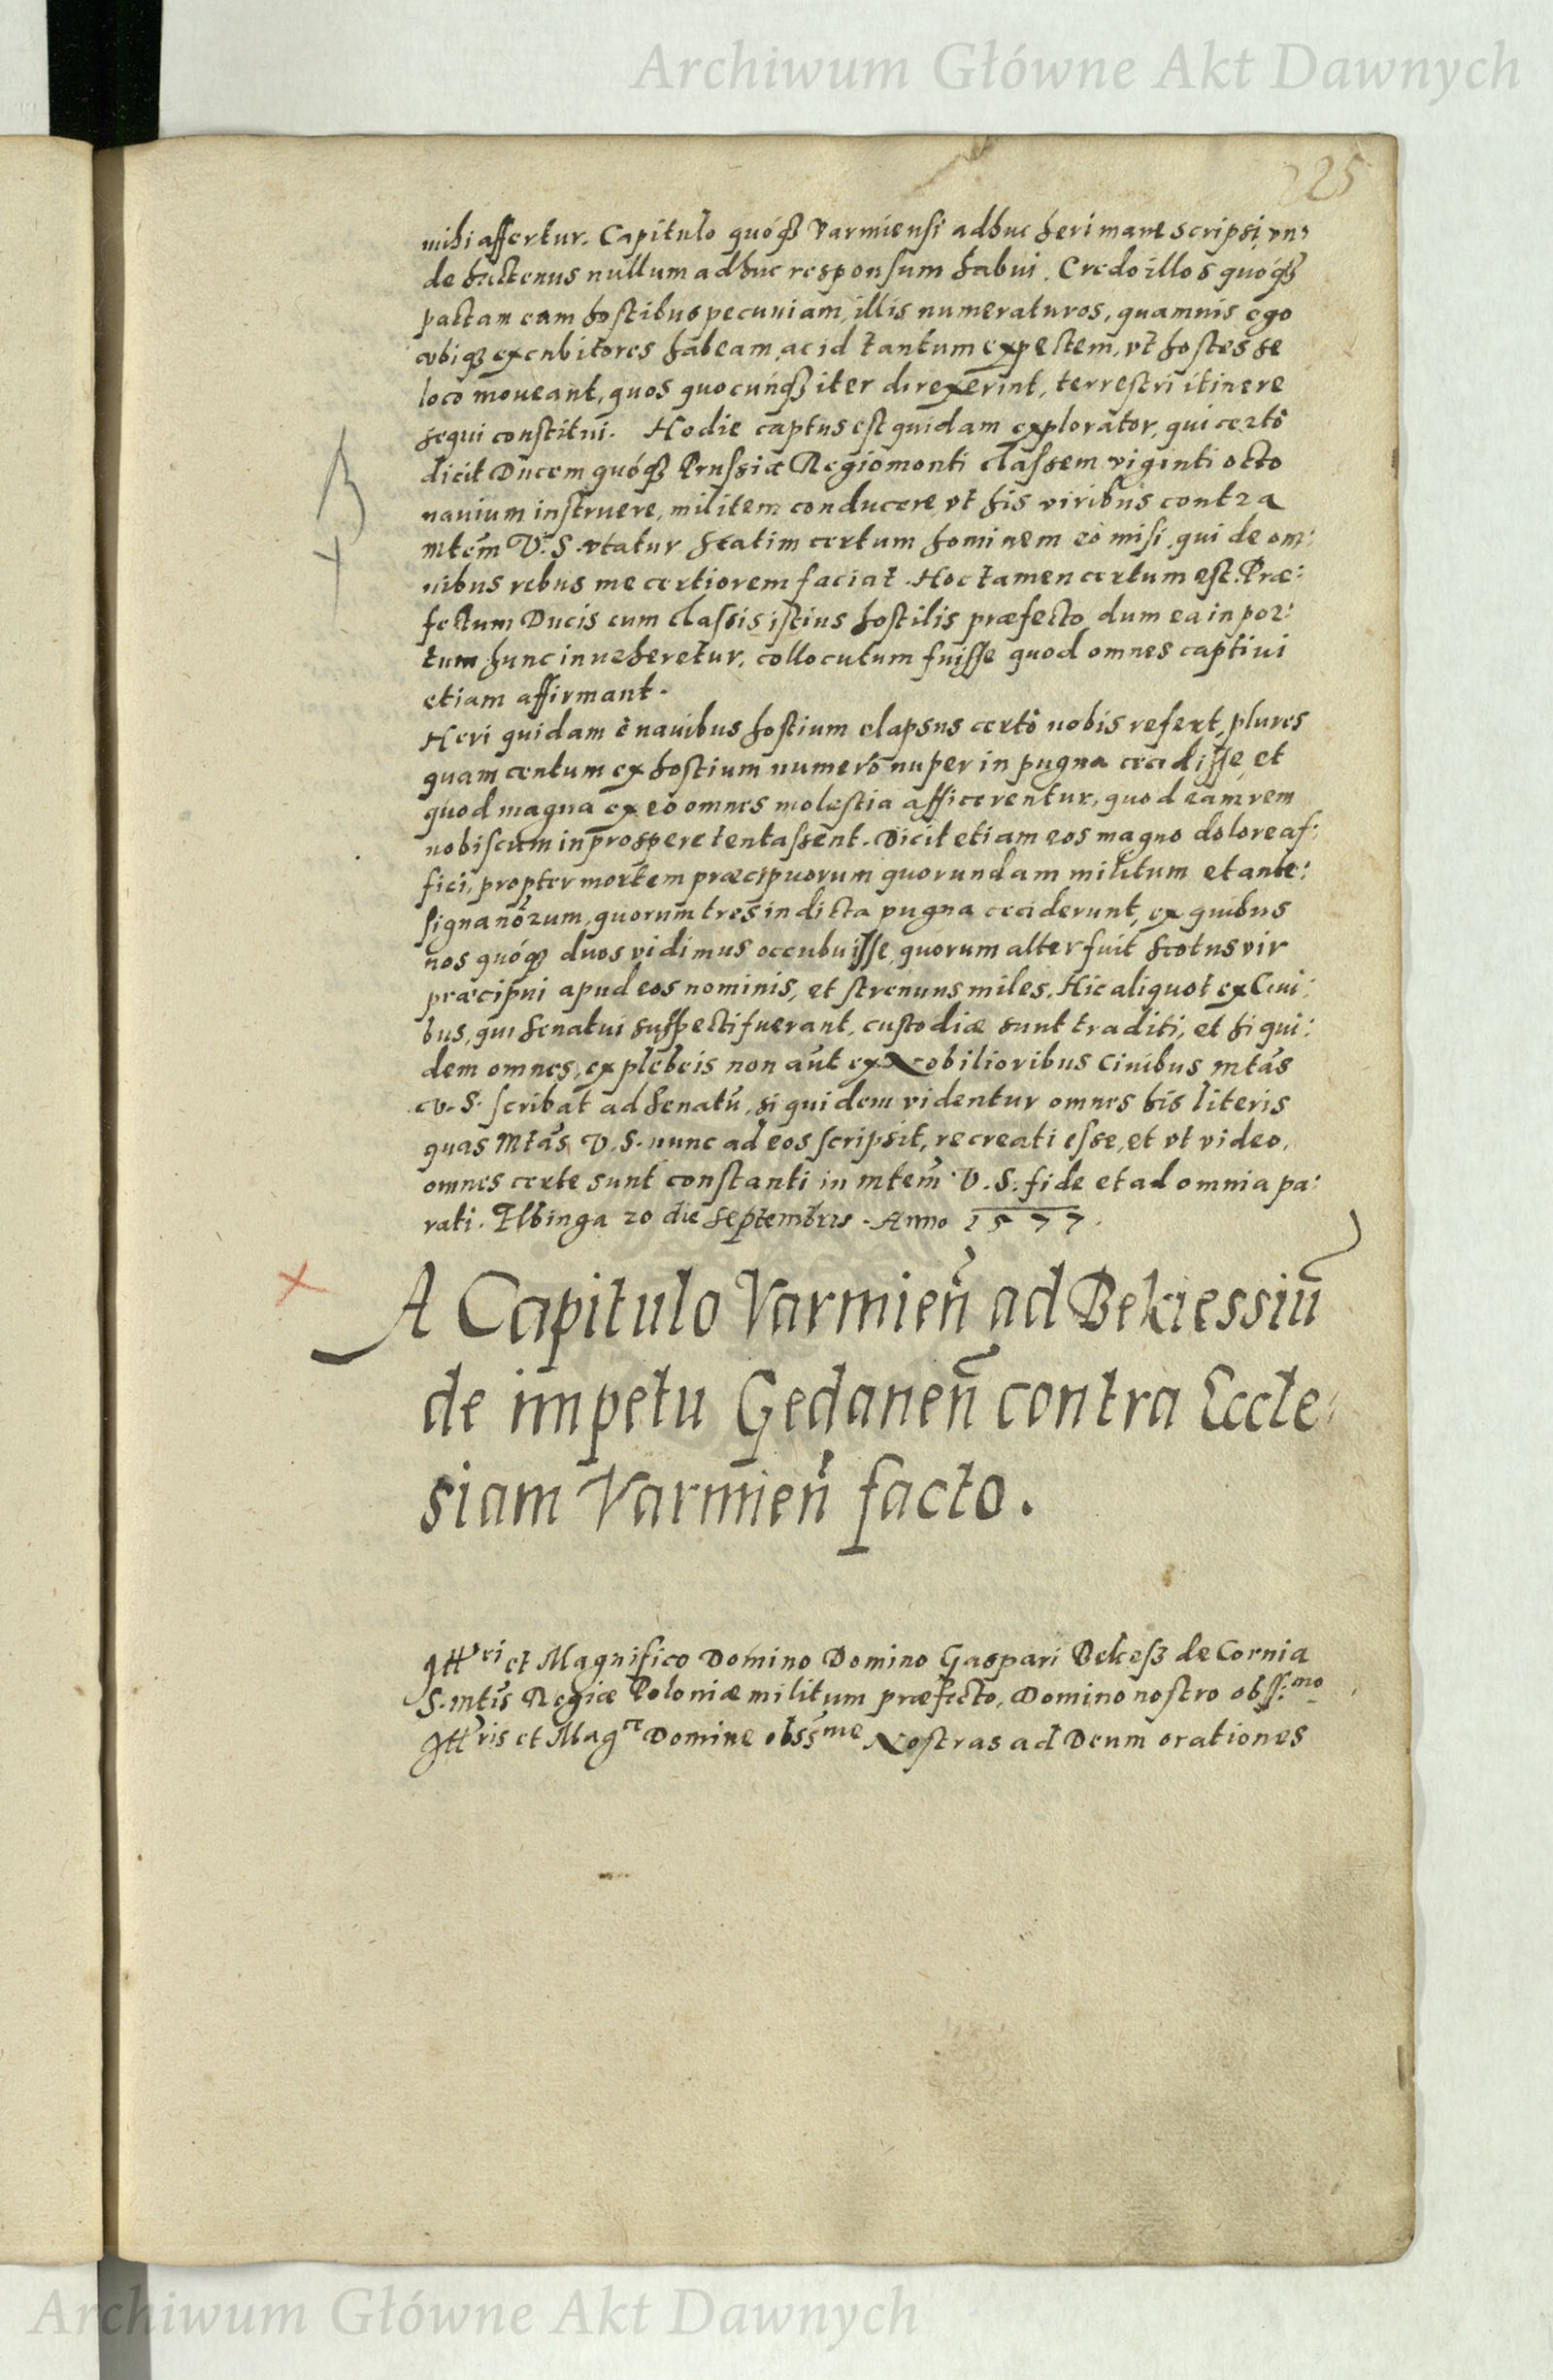 Archiwum Główne Akt Dawnych
225
mihi affertur. Capitulo quóq3 Varmiensi adhuc heri mane scripsi, vn,
de hactenus nullum adhuc responsum habui. Credo illos quóq3
pactam cum hostibus pecuniam, illis numeraturos, quamuis ego
vbiq3 excubitores habeam, ac id tantum expectem, vt hostes se
loco moueant, quos quocunq3 iter direxerint, terrestri itinere
sequi constitui. Hodie captus est quidam explorator, qui certò
dicit Ducem quóq3 Prussiæ Regiomonti classem viginti octo
nauium instruere, militem conducere, vt his viribus contra
mtem V. S. vtatur statim certum hominem eò misi, qui de om:
nibus rebus me certiorem faciat. Hoc tamen certum est. Præ:
fectum Ducis cum classis istius hostilis præfecto, dum ea in por:
tum hunc inueheretur, collocutum fuisse quod omnes captiui
etiam affirmant.
Heri quidam è nauibus hostium elapsus certò nobis refert, plures
quam centum ex hostium numero nuper in pugna cecidisse, et
quod magna ex eo omnes molestia afficerentur, quod eam rem
nobiscum in prospere tentassent. Dicit etiam eos magno dolore af:
fici, propter mortem præcipuorum quorundam militum et ante:
signanorum, quorum tres in dicta pugna ceciderunt, ex quibus
nos quóq3 duos vidimus occubuisse, quorum alter fuit Scotus vir
præcipui apud eos nominis, et strenuus miles. Hic aliquot ex Ciui:
bus, qui Senatui suspecti fuerant, custodiæ sunt traditi, et si qui:
dem omnes, ex plebeis non aut ex Nobilioribus Ciuibus mtas
V. S. scribat ad Senatũ, si quidem videntur omnes his literis
quas Mtas V. S. nunc ad eos scripsit, recreati esse, et vt video,
omnes certe sunt constanti in mtem V. S. fide et ad omnia pa:
rati. Elbinga 20 die Septembris. Anno 1577.
A Capitulo Varmień ad Bekiessiũ
de impetu Gedaneñ contra Eccle:
siam Varmień facto.
Ill ri et Magnifico Domino Domino Gaspari Bekesz de Cornia
S. mtis Regiæ Poloniæ militum præfecto, Domino nostro obss:mo
Ill ris et Mag ce Domine obss me Nostras ad Deum orationes
Archiwum Główne Akt Dawnych